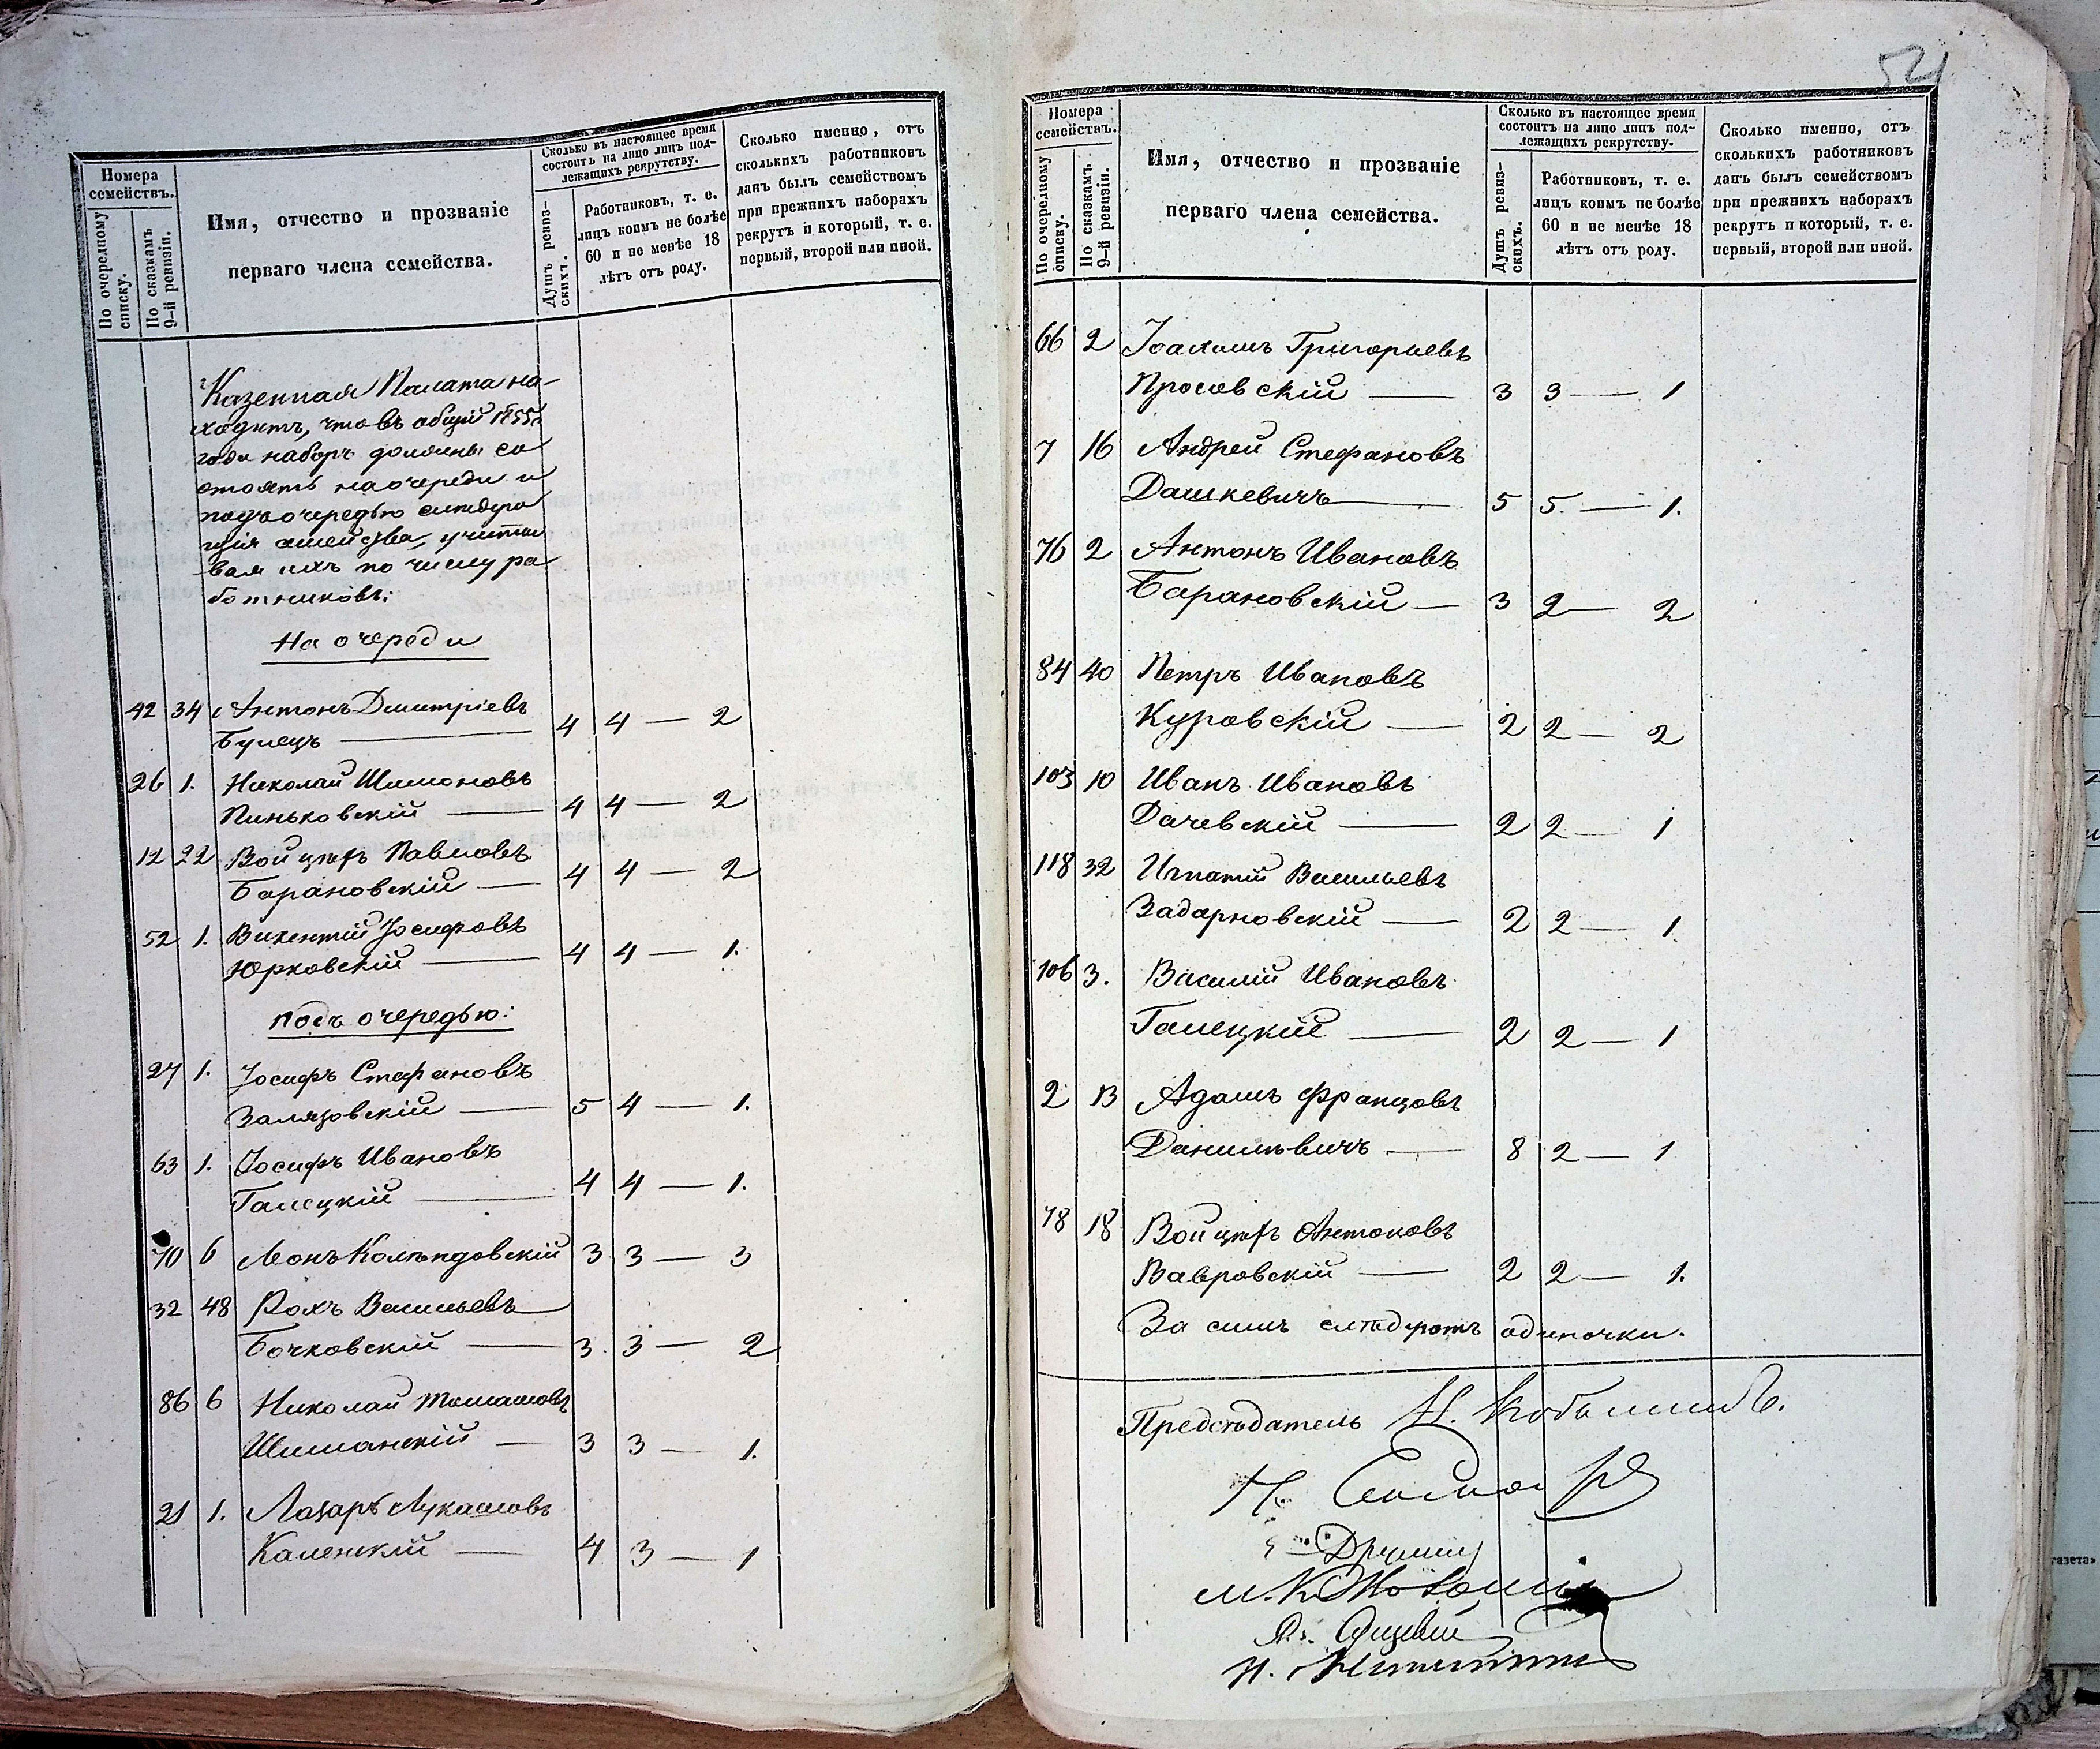 54
Номера
семействъ.
По очередному
списку.
По сказкамъ
9-й ревизіи.
Имя, отчество и прозваніе
перваго члена семейства.
Сколько въ настоящее время
состоитъ на лицо лицъ под-
лежащихъ рекрутству.
Душъ ревиз-
скихъ.
Работниковъ, т. е.
лицъ коимъ не болѣе
60 и не менѣе 18
лѣтъ отъ роду.
Сколько именно, отъ
сколькихъ работниковъ
данъ былъ семействомъ
при прежнихъ наборахъ
рекрутъ и который, т. е.
первый, второй или иной.
Казенная Палата на-
ходитъ, что въ общій 1855
года наборъ должны со
стоять на очереди и
подъ очередью слѣдую
щія семейства, учиты
вая ихъ по числу ра
ботниковъ:
На очереди
42 34 Антонъ Дмитріевъ
Бунецъ — 4 4 — 2
26 1. Николай Шимоновъ
Пиньковскій — 4 4 — 2
12 22 Войцехъ Павловъ
Барановскій — 4 4 — 2
52 1. Викентій Іосифовъ
Юрковскій — 4 4 — 1.
подъ очередью:
27 1. Іосифъ Стефановъ
Залязовскій — 5 4 — 1.
63 1. Іосифъ Ивановъ
Галецкій — 4 4 — 1.
70 6 Леонъ Колендовскій 3 3 — 3
32 48 Рохъ Васильевъ
Бочковскій — 3. 3 — 2
86 6 Николай Томашовъ
Шиманскій — 3 3 — 1.
21 1. Лазарь Лукашовъ
Каменскій — 4 3 — 1
Номера
семействъ.
По очередному
списку.
По сказкамъ
9-й ревизіи.
Имя, отчество и прозваніе
перваго члена семейства.
Сколько въ настоящее время
состоитъ на лицо лицъ под-
лежащихъ рекрутству.
Душъ ревиз-
скихъ.
Работниковъ, т. е.
лицъ коимъ не болѣе
60 и не менѣе 18
лѣтъ отъ роду.
Сколько именно, отъ
сколькихъ работниковъ
данъ былъ семействомъ
при прежнихъ наборахъ
рекрутъ и который, т. е.
первый, второй или иной.
66 2 Іоахимъ Григорьевъ
Просовскій — 3 3 — 1
7 16 Андрей Стефановъ
Дашкевичъ — 5 5. — 1.
76 2 Антонъ Ивановъ
Барановскій — 3 2 — 2
84 40 Петръ Ивановъ
Куровскій — 2 2 — 2
103 10 Иванъ Ивановъ
Дачевскій — 2 2 — 1
118 32 Игнатій Васильевъ
Задарновскій — 2 2 — 1.
106 3. Василій Ивановъ
Галецкій — 2 2 — 1
2 13 Адамъ Францовъ
Данилевичъ — 8 2 — 1
78 18 Войцехъ Антоновъ
Вавровскій — 2 2 — 1.
За симъ слѣдуютъ одиночки.
Предсѣдатель
газета»